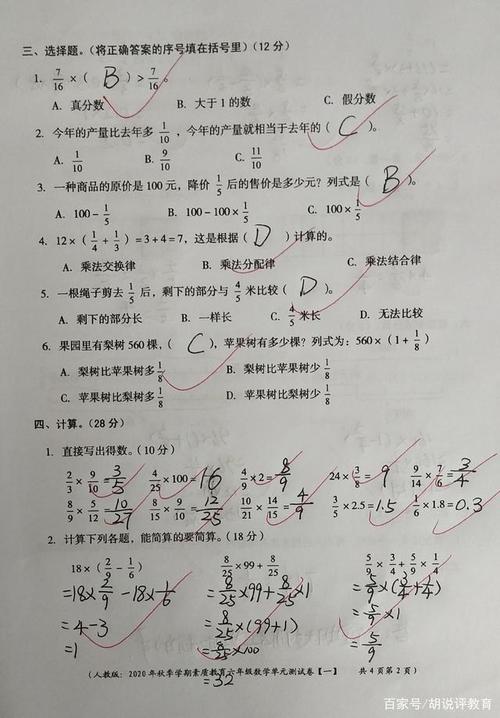 三、选择题。(将正确答案的序号填在括号里)(12 分)
1. 7/16 ×( B )> 7/16 。
A. 真分数 B. 大于 1 的数 C. 假分数
2. 今年的产量比去年多 1/10 ，今年的产量就相当于去年的( C )。
A. 1/10 B. 9/10 C. 11/10
3. 一种商品的原价是 100 元，降价 1/5 后的售价是多少元？列式是( B )。
A. 100-1/5 B. 100-100×1/5 C. 100×1/5
4. 12×(1/4+1/3)=3+4=7，这是根据( D )计算的。
A. 乘法交换律 B. 乘法分配律 C. 乘法结合律
5. 一根绳子剪去 1/5 后，剩下的部分与 4/5 米比较( D )。
A. 剩下的部分长 B. 一样长 C. 4/5 米长 D. 无法比较
6. 果园里有梨树 560 棵，( C )，苹果树有多少棵？列式为：560×(1+1/8)
A. 梨树比苹果树多 1/8 B. 梨树比苹果树少 1/8
C. 苹果树比梨树多 1/8 D. 苹果树比梨树少 1/8
四、计算。(28 分)
1. 直接写出得数。(10 分)
2/3×9/10=3/5 4/25×100=16 4/9×2=8/9 24×3/8=9 9/14×7/6=3/4
8/9×5/12=10/27 8/15×9/10=12/25 10/21×14/15=4/9 3/5×2.5=1.5 1/6×1.8=0.3
2. 计算下列各题，能简算的要简算。(18 分)
18×(2/9-1/6) 8/25×99+8/25 5/9×3/4+5/9×1/4
=18×2/9-18×1/6 =8/25×99+8/25×1 =5/9×(3/4+1/4)
=4-3 =8/25×(99+1) =5/9×1
=1 =8/25×100 =5/9
=32
(人教版：2020 年秋季学期素质教育六年级数学单元测试卷【一】 共 4 页第 2 页)
百家号/胡说评教育